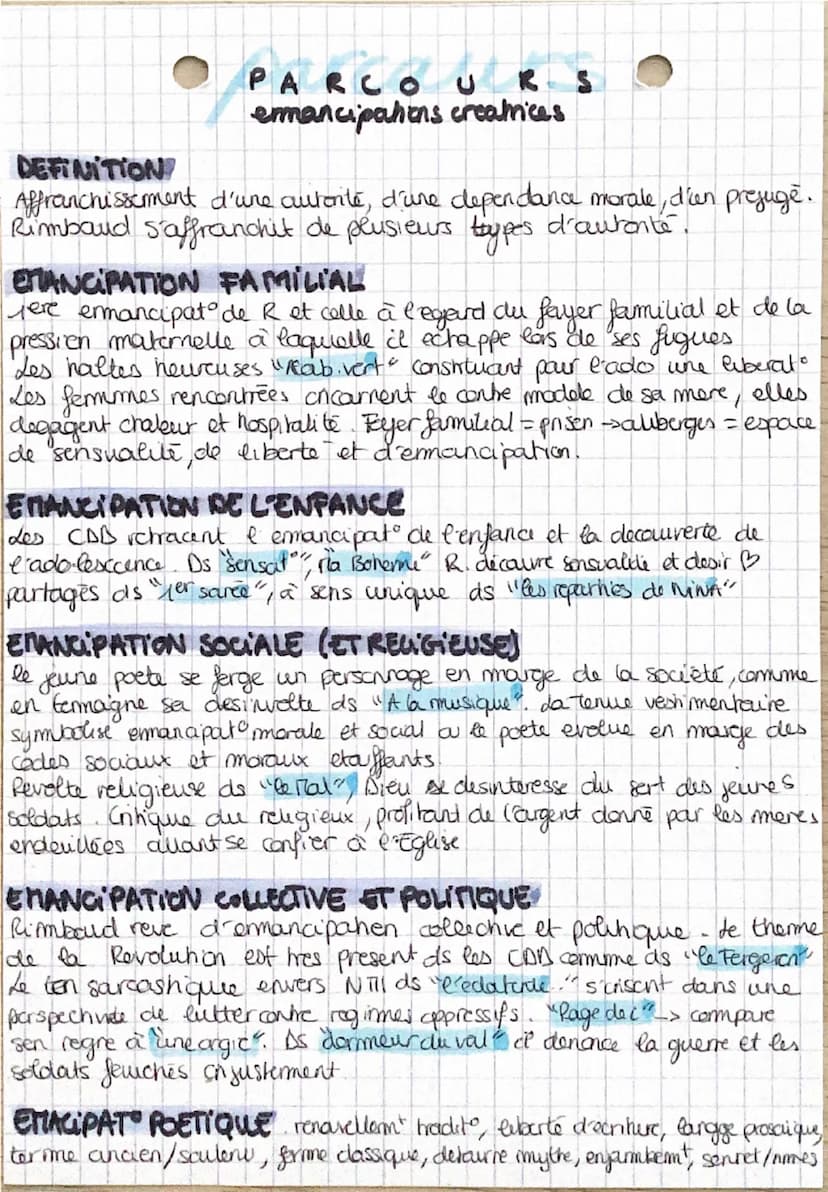 parcours
PARCOURS
emancipations creatrices
DEFINITION
Affranchissement d'une autorité, d'une dependance morale, d'un prejugé.
Rimbaud s'affranchit de plusieurs types d'autorité.
EMANCIPATION FAMILIAL
1ere emancipat° de R et celle à l'egard du foyer familial et de la
pression maternelle à laquelle il echappe lors de ses fugues
Les haltes heureuses "cab.vert" constituant pour l'ado une liberat°
Les femmes rencontrées incarnent le contre modele de sa mere, elles
degagent chaleur et hospitalité. Foyer familial = prison → auberges = espace
de sensualité, de liberte et d'emancipation.
EMANCIPATION DE L'ENFANCE
Les CDD retracent l'emancipat° de l'enfance et la decouverte de
l'adolescence. Ds "sensat°", "ma Boheme" R. découvre sensualité et desir ♡
partagés ds "1er soirée", à sens unique ds "les reparties de NINA"
EMANCIPATION SOCIALE (ET RELIGIEUSE)
le jeune poete se forge un personnage en marge de la société, comme
en temoigne sa desinvolte ds "A la musique". La tenue vestimentaire
symbolise emancipat° morale et social où le poete evolue en marge des
codes sociaux et moraux etouffants.
Revolte religieuse ds "le Mal", Dieu se desinteresse du sort des jeunes
soldats. Critique du religieux, profitant de l'argent donné par les meres
endeuillées avant se confier à l'Eglise
EMANCIPATION COLLECTIVE ET POLITIQUE
Rimbaud reve d'emancipation collective et politique. Le theme
de la Revolution est tres present ds les CDD comme ds "le Forgeron"
Le ton sarcastique envers NIII ds "l'eclatante.." s'inscrit dans une
perspective de lutter contre regimes oppressifs. "Rage de c" → compare
son regne à "une orgie". Ds "dormeur du val" il denonce la guerre et les
soldats fauchés injustement.
EMACIPAT° POETIQUE renouvellemt tradit°, liberté d'ecriture, langge prosaique,
terme ancien/soutenu, forme classique, detourne mythe, enjambemt, sonnet/rimes